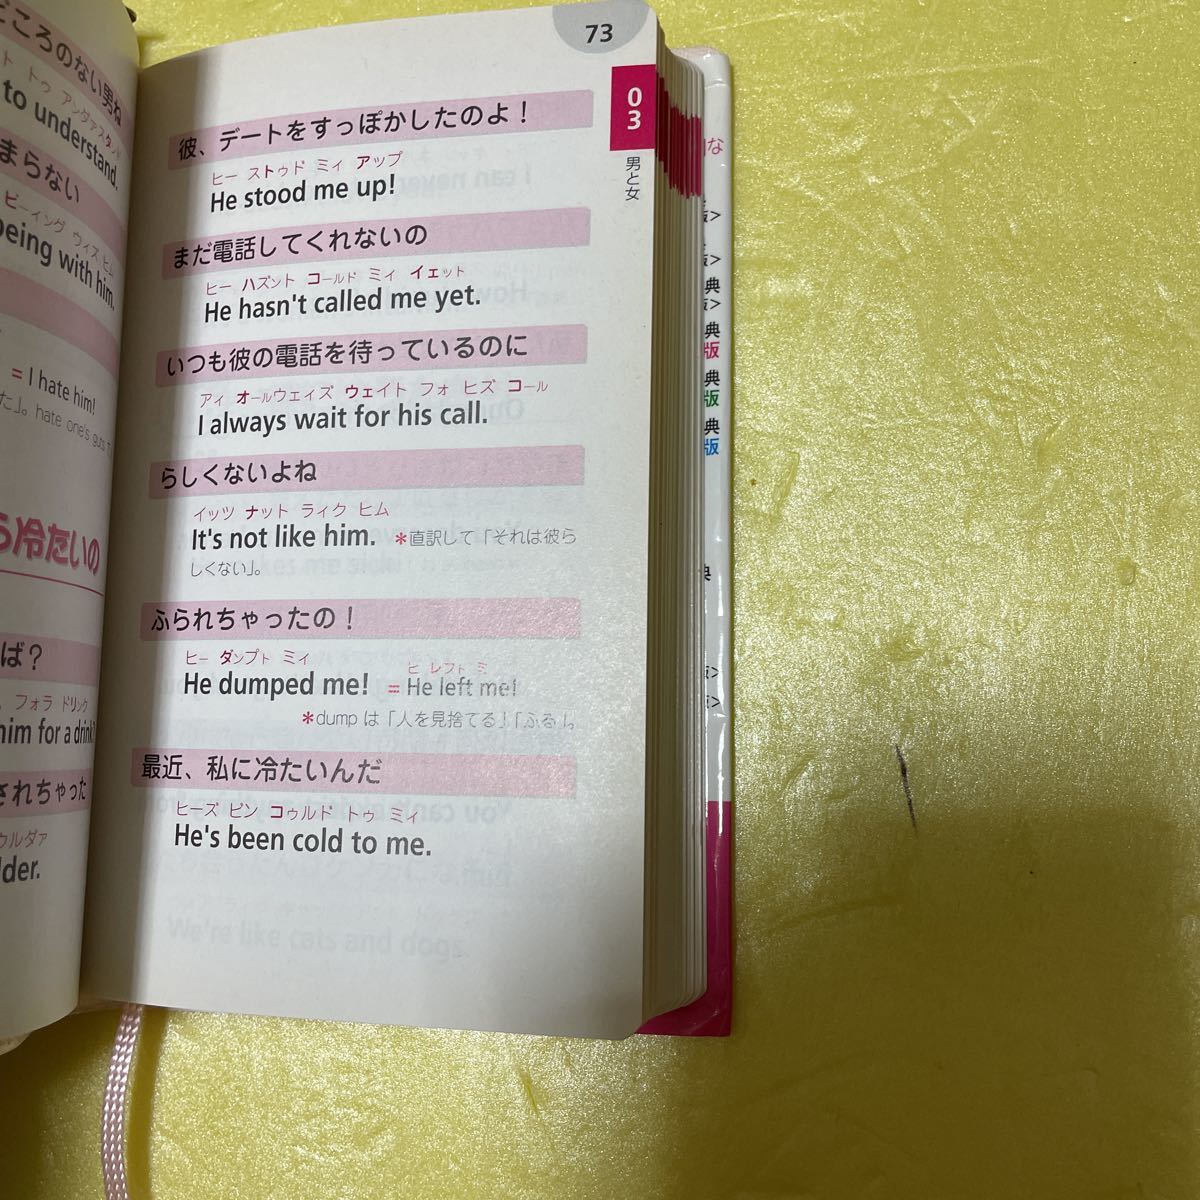 どころのない男ね
ト トゥ アンダァスタンド
to understand.
まらない
ビーイング ウィズ ヒム
being with him.
= I hate him!
た」。hate one's guts
ら冷たいの
ば？
フォラ ドリンク
him for a drink?
されちゃった
ゥルダァ
lder.
73
03
男と女
彼、デートをすっぽかしたのよ！
ヒー ストゥド ミィ アップ
He stood me up!
まだ電話してくれないの
ヒー ハズント コールド ミィ イェット
He hasn't called me yet.
いつも彼の電話を待っているのに
アィ オールウェィズ ウェイト フォ ヒズ コール
I always wait for his call.
らしくないよね
イッツ ナット ライク ヒム
It's not like him. ＊直訳して「それは彼ら
しくない」。
ふられちゃったの！
ヒー ダンプト ミィ ヒ レフト ミ
He dumped me! = He left me!
＊dump は「人を見捨てる」「ふる」。
最近、私に冷たいんだ
ヒーズ ビン コゥルド トゥ ミィ
He's been cold to me.
We're like cats and dogs.
な
版>
版>
典
版>
典
版
典
版
典
版
典
版>
版>